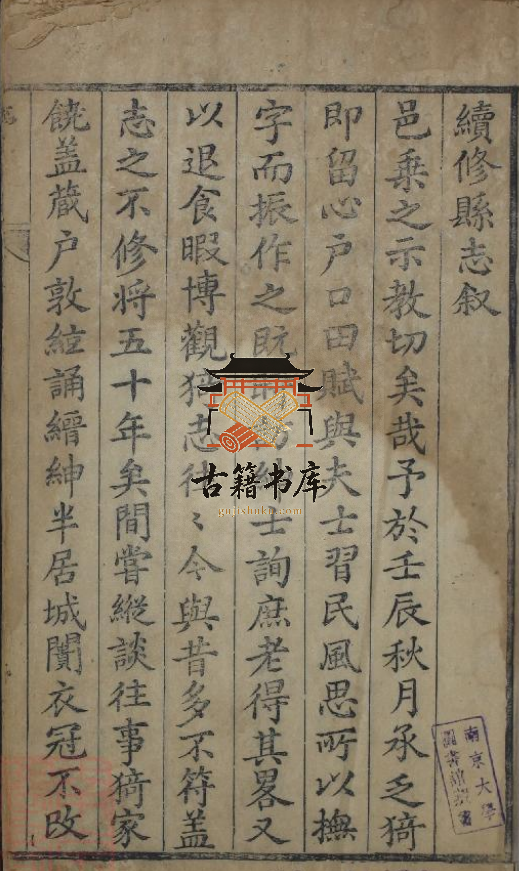 續修縣志叙
邑乗之示教切矣哉予於壬辰秋月承乏猗
即留心戶口田賦與夫士習民風思所以撫
字而振作之既士詢庶老得其畧又
以退食暇博觀猗志往〻今與昔多不符盖
志之不修将五十年矣間嘗縱談往事猗家
饒盖蔵戶敦絃誦縉紳半居城闤衣冠不改
古籍书库
gujishuku.com
南京大學
圖書館藏